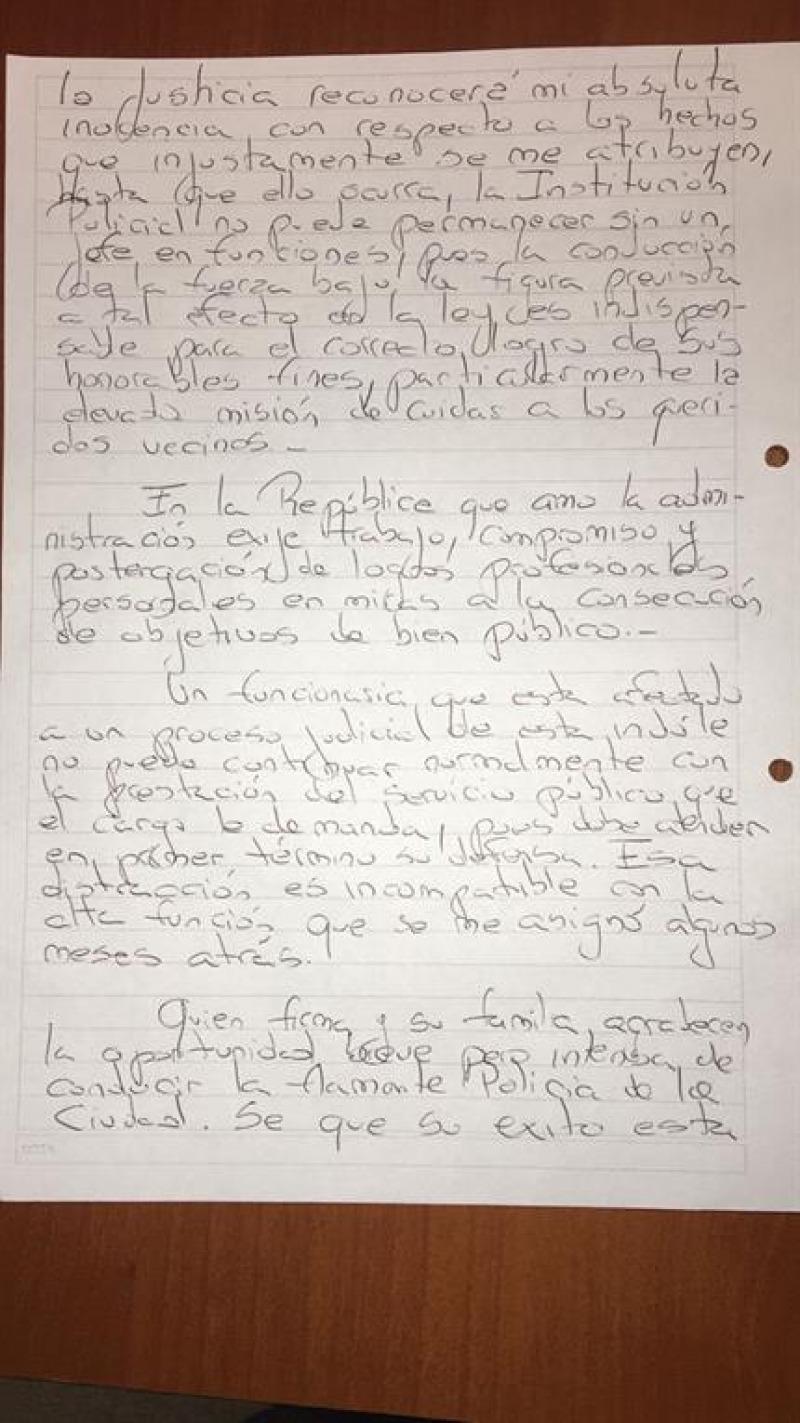 la Justicia reconoceré mi absoluta
inocencia, con respecto a los hechos
que injustamente se me atribuyen,
hasta que ello ocurra, la Institución
Policial no puede permanecer sin un
jefe en funciones, pues la conducción
de la fuerza bajo la figura prevista
a tal efecto de la ley es indispen-
sable para el correcto logro de sus
honorables fines, particularmente la
elevada misión de cuidar a los queri-
dos vecinos -
En la República que amo la admi-
nistración exije trabajo, compromiso y
postergación de logros profesionales
personales en miras a la consecución
de objetivos de bien público.-
Un funcionario que esta afectado
a un proceso judicial de esta indole
no puede contribuar normalmente con
la prestación del servicio público que
el cargo le demanda, pues debe atender
en primer término su defensa. Esa
distracción es incompatible con la
alta función que se me asignó algunos
meses atrás.
Quien firma y su familia, agradecen
la oportunidad breve pero intensa de
conducir la flamante Policia de la
Ciudad. Se que su exito esta